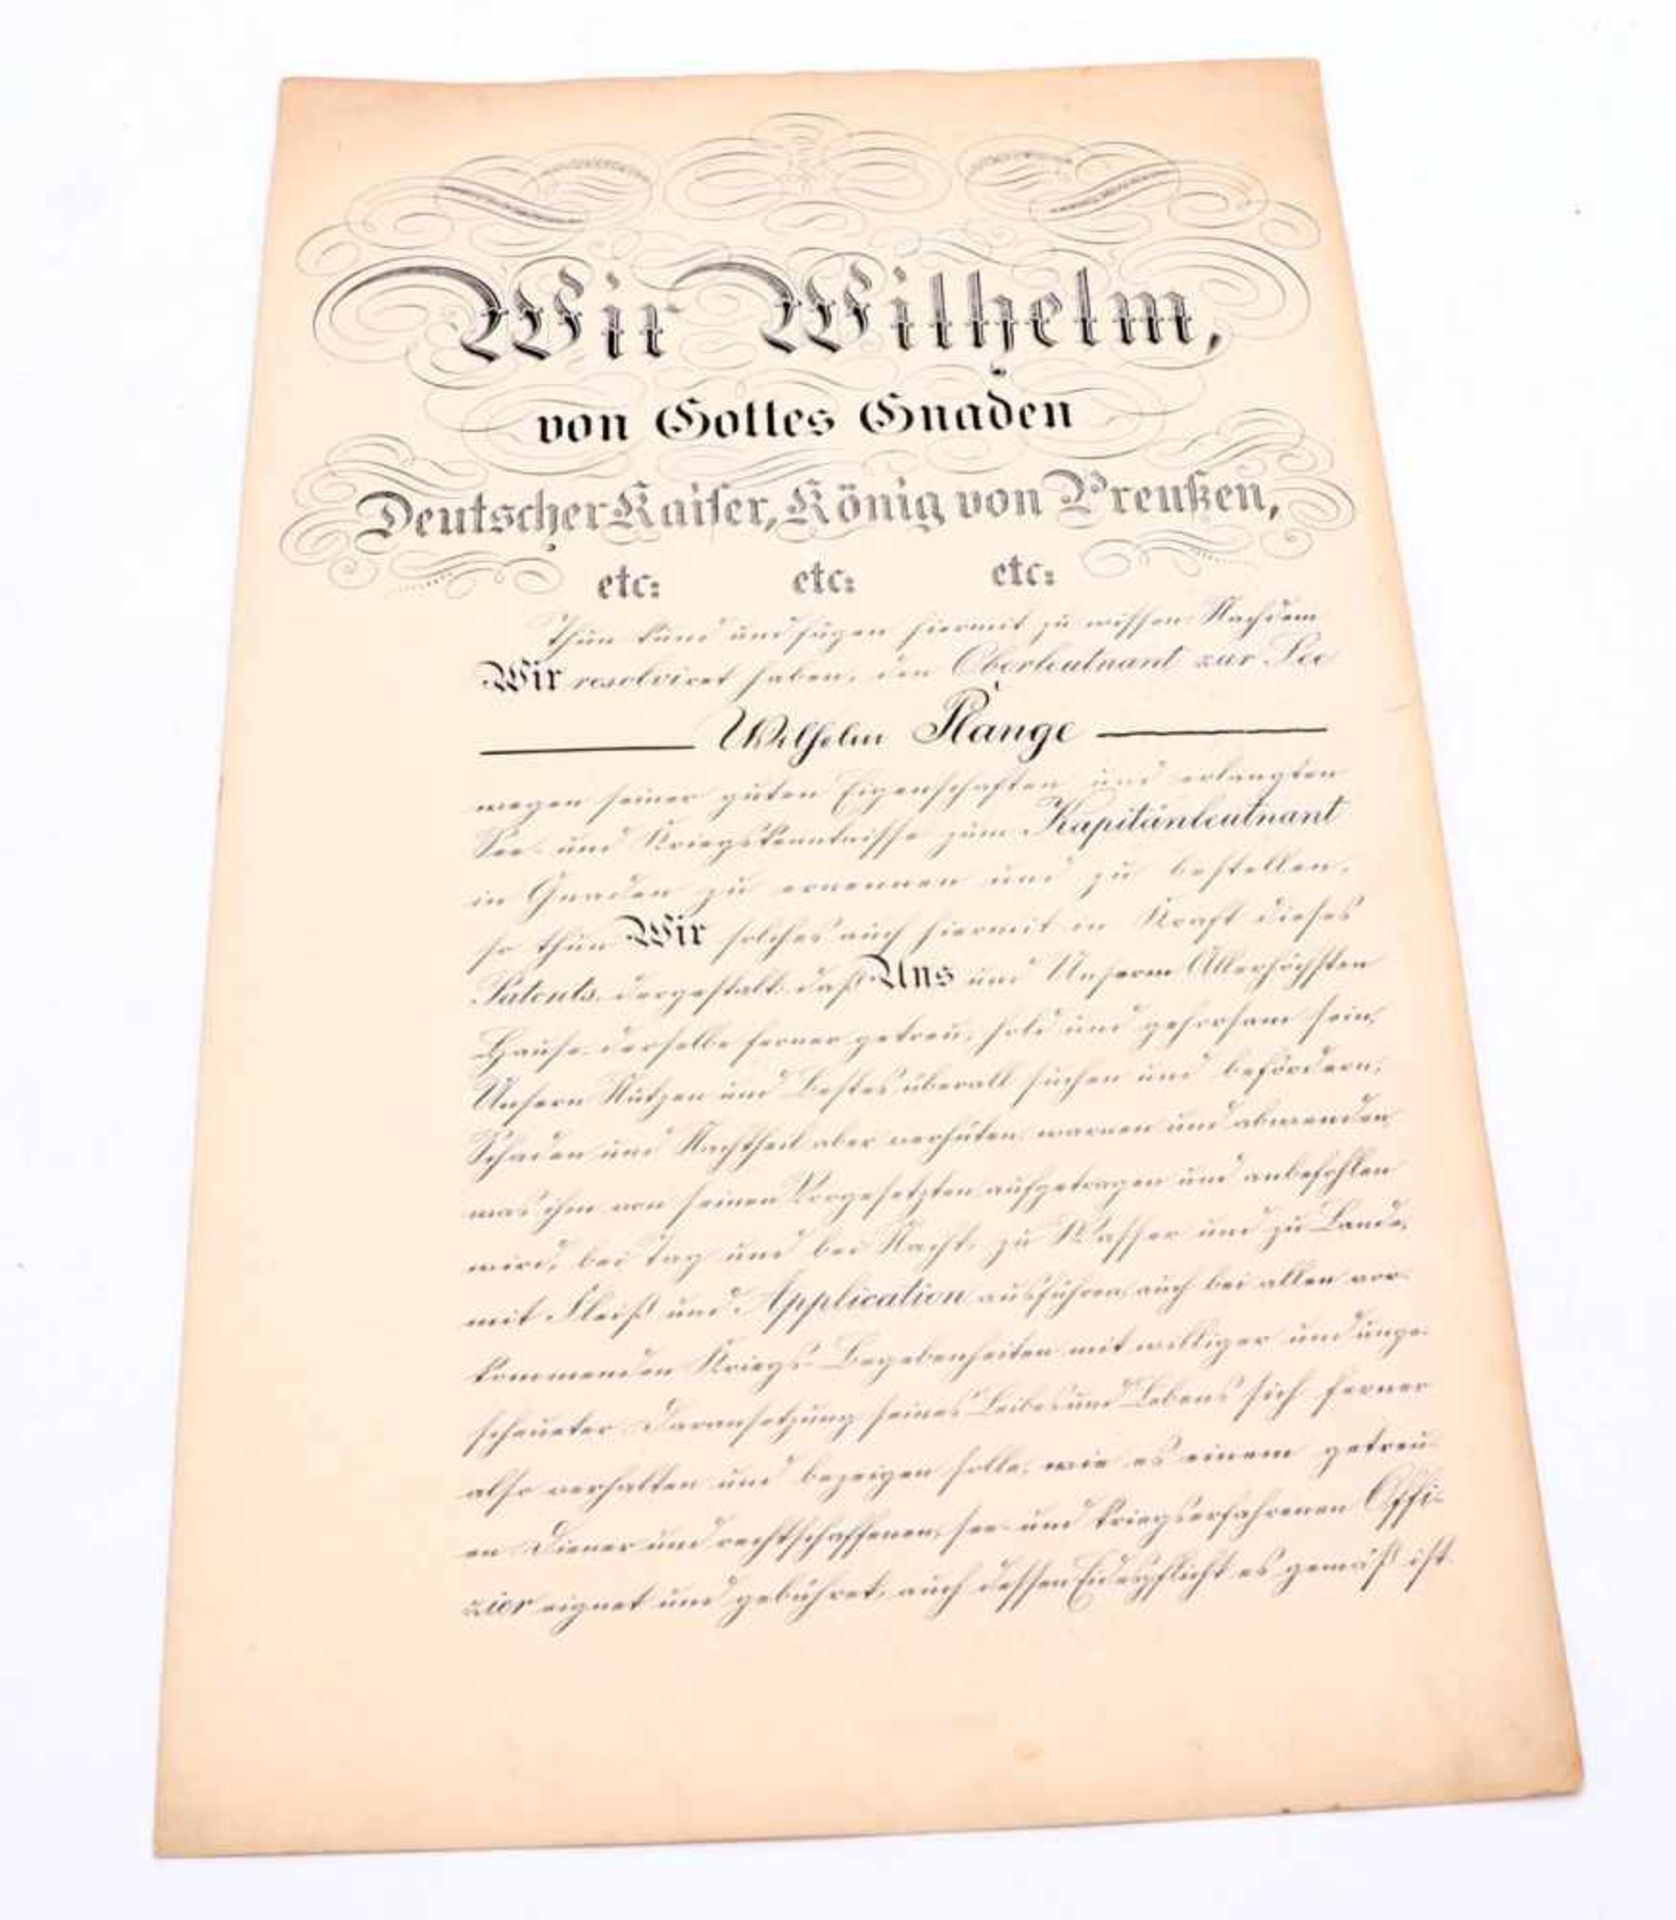 Wir Wilhelm,
von Gottes Gnaden
Deutscher Kaiser, König von Preußen,
etc: etc: etc:
Thun kund und fügen hiermit zu wissen: Nachdem
Wir resolviret haben, den Oberleutnant zur See
Wilhelm Plange
wegen seiner guten Eigenschaften und erlangten
See- und Kriegskenntnisse zum Kapitänleutnant
in Gnaden zu ernennen und zu bestellen,
so thun Wir solches auch hiermit in Kraft dieses
Patents dergestalt: daß Uns und Unserm Allerhöchsten
Hause derselbe ferner getreu, hold und gehorsam sein,
Unsern Nutzen und Bestes überall suchen und befördern;
Schaden und Nachtheil aber verhüten, warnen und abwenden,
was ihm von seinen Vorgesetzten aufgetragen und anbefohlen
wird, bei Tag und bei Nacht, zu Wasser und zu Lande,
mit Fleiß und Application ausführen, auch bei allen vor-
kommenden Kriegs-Begebenheiten mit williger und unge-
scheueter Daransetzung seines Leibes und Lebens sich ferner
also verhalten und bezeigen solle, wie es einem getreu-
en Diener und rechtschaffenen, see- und kriegserfahrenen Offi-
zier eignet und gebühret, auch dessen Eidespflicht es gemäß ist.